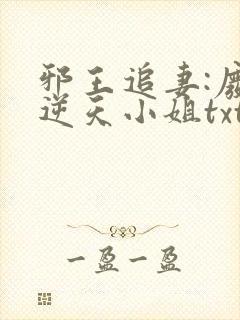 邪王追妻:废
逆天小姐txt
一盈一盈